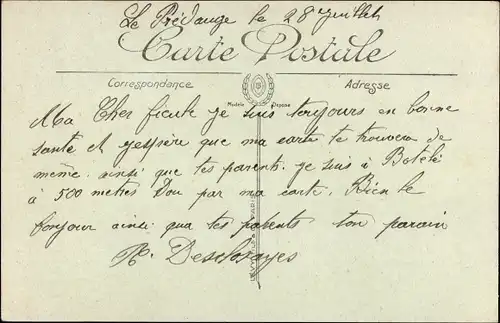 Le Prédauge le 28 juillet
Carte Postale
Correspondance
Adresse
Modèle Déposé
Ma Cher je suis toujours en bonne
santé et j'espère que ma carte te trouvera de
même ainsi que tes parents je suis à
à 500 mètres par ma carte. Bien le
bonjour ainsi que tes parents ton parain